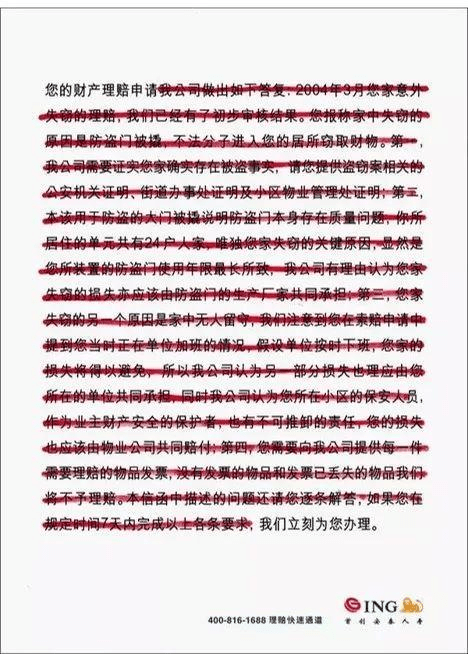 您的财产理赔申请我公司做出如下答复：2004年3月您家意外
失窃的理赔，我们已经有了初步审核结果。您报称家中失窃的
原因是防盗门被撬，不法分子进入您的居所窃取财物。第一，
我公司需要证实您家确实存在被盗事实，请您提供盗窃案相关的
公安机关证明、街道办事处证明及小区物业管理处证明；第二，
本该用于防盗的大门被撬说明防盗门本身存在质量问题，你所
居住的单元共有24户人家，唯独您家失窃的关键原因，显然是
您所装置的防盗门使用年限最长所致，我公司有理由认为您家
失窃的损失亦应该由防盗门的生产厂家共同承担；第三，您家
失窃的另一个原因是家中无人留守，我们注意到您在索赔申请中
提到您当时正在单位加班的情况，假设单位按时下班，您家的
损失将得以避免，所以我公司认为另一部分损失也理应由您
所在的单位共同承担，同时我公司认为您所在小区的保安人员，
作为业主财产安全的保护者，也有不可推卸的责任，您的损失
也应该由物业公司共同赔付；第四，您需要向我公司提供每一件
需要理赔的物品发票，没有发票的物品和发票已丢失的物品我们
将不予理赔。本信函中描述的问题还请您逐条解答，如果您在
规定时间7天内完成以上各条要求，我们立刻为您办理。
400-816-1688 理赔快速通道
ING
首创安泰人寿